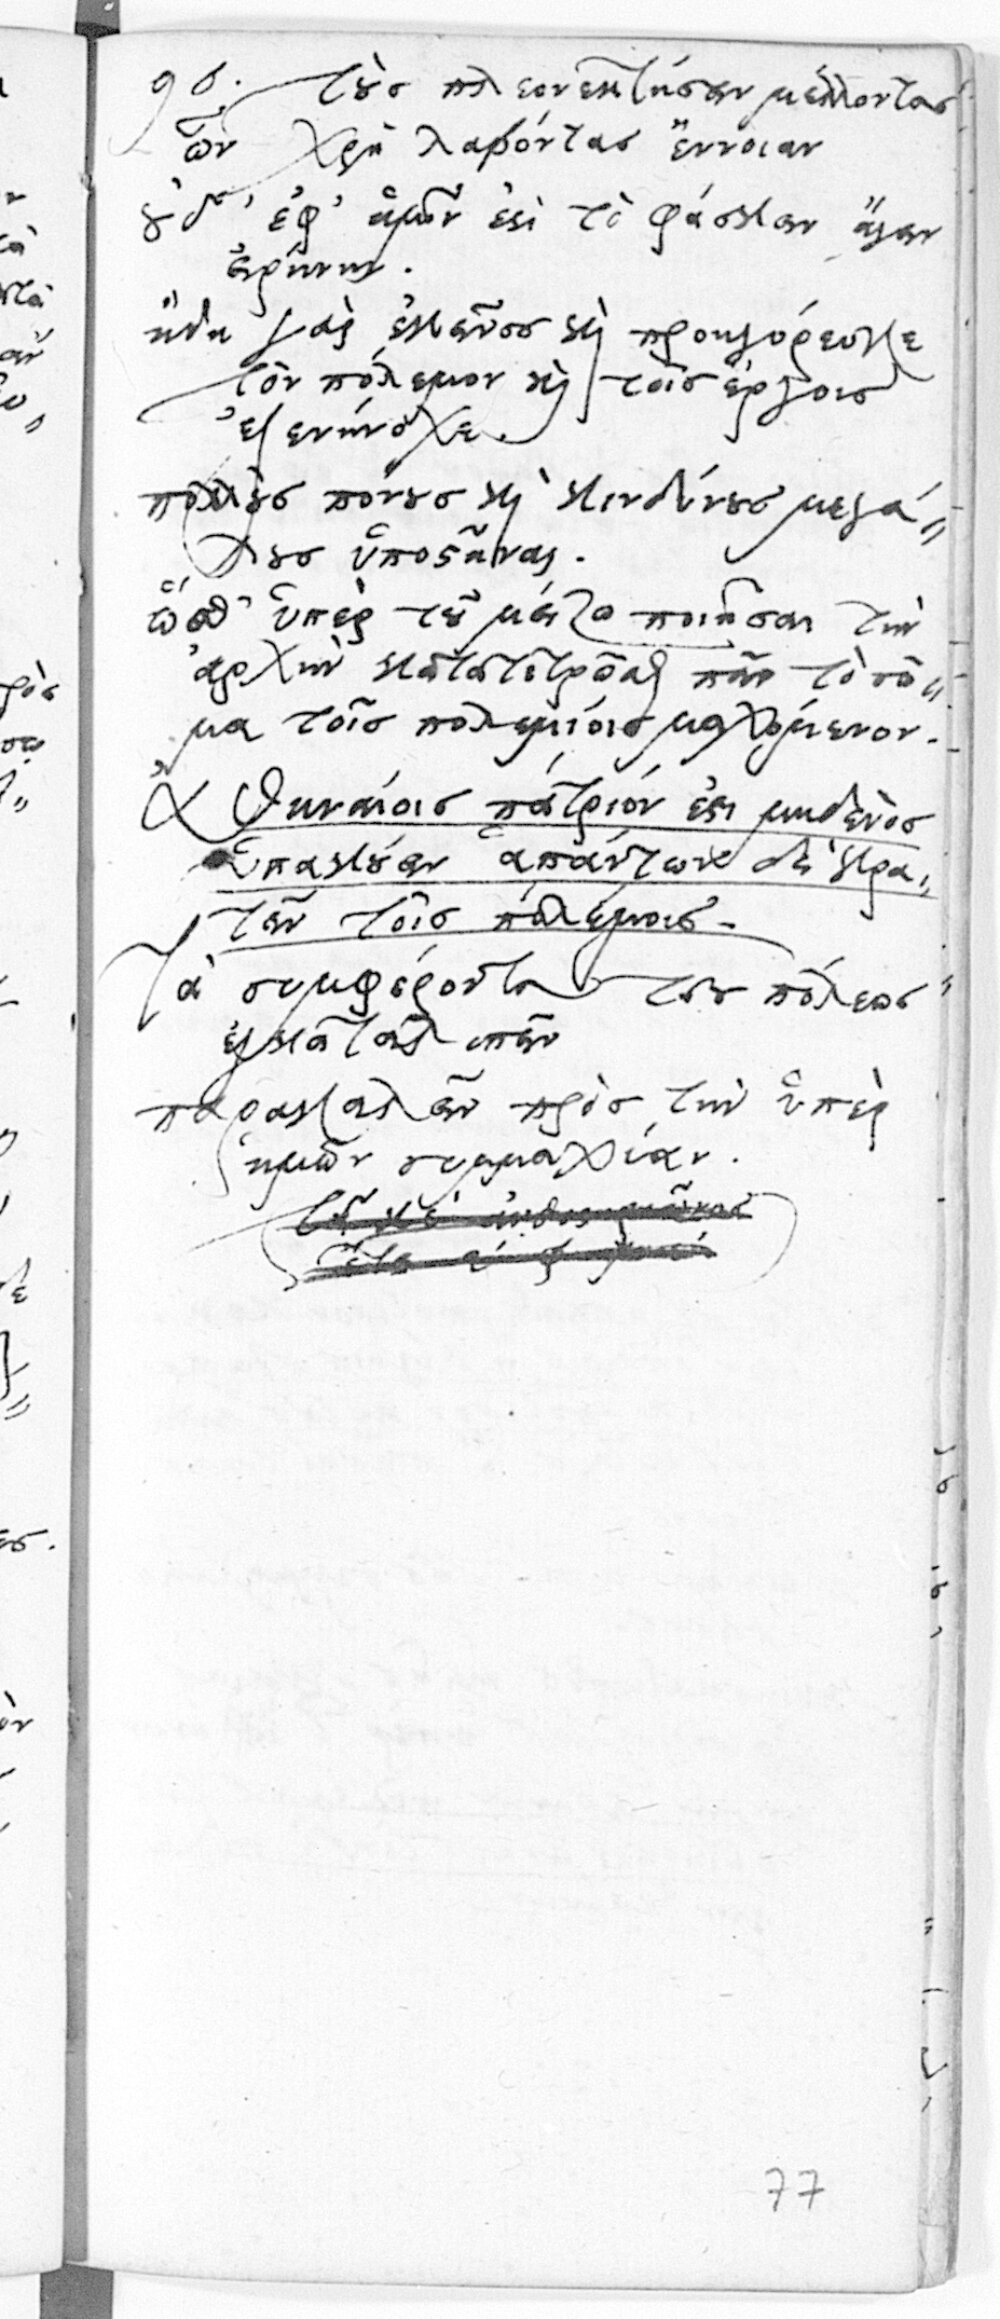 96. τοὺς πλεονεκτήσειν μέλλοντας
ὧν χρὴ λαβόντας ἔννοιαν
οὐδ' ἐφ' ἡμῖν ἐστὶ τὸ φάσκειν ἄγειν
εἰρήνην.
ἤδη γὰρ ἐκεῖνος καὶ προηγόρευκε
τὸν πόλεμον καὶ τοῖς ἔργοις
ἐξενήνοχε.
πολλοὺς πόνους καὶ κινδύνους μεγά〃
λους ὑποστῆναι.
ὥσθ' ὑπὲρ τοῦ μείζω ποιῆσαι τὴν
ἀρχὴν κατατετρῶσθαι πᾶν τὸ σῶ〃
μα τοῖς πολεμίοις μαχόμενον.
Ἀθηναίοις πάτριόν ἐστι μηδενὸς
ὑπακούειν ἁπάντων δὲ κρα〃
τεῖν τοῖς πολέμοις.
Τὰ συμφέροντα τῆς πόλεως
ἐγκαταλιπεῖν
παρακαλεῖν πρὸς τὴν ὑπὲρ
ἡμῶν συμμαχίαν.
77